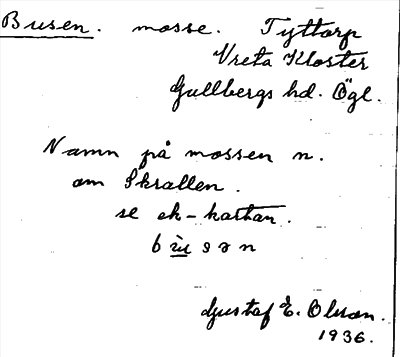 Busen. mosse. Tyttorp
Vreta Kloster
Gullbergs hd. Ögl.
Namn på mossen n.
om Skrallen.
se ek-kartan.
b ùu s ə n
Gustaf E. Olsson.
1936.